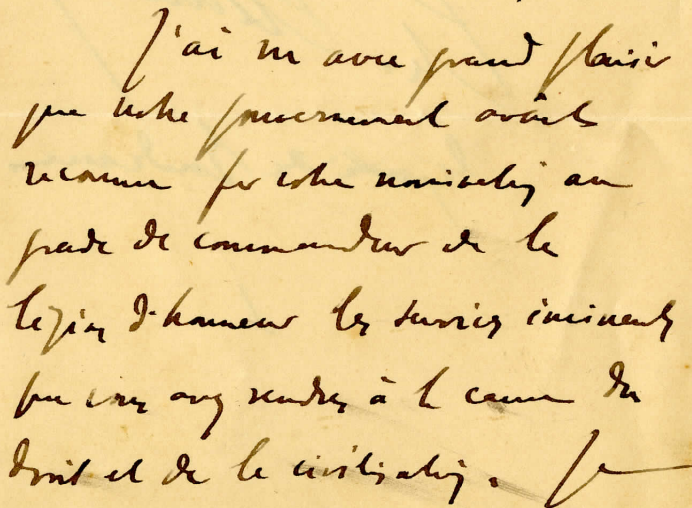 J'ai vu avec grand plaisir
que notre gouvernement avait
reconnu par votre nomination au
grade de commandeur de la
légion d'honneur les services éminents
que vous avez rendus à la cause du
droit et de la civilisation. Je